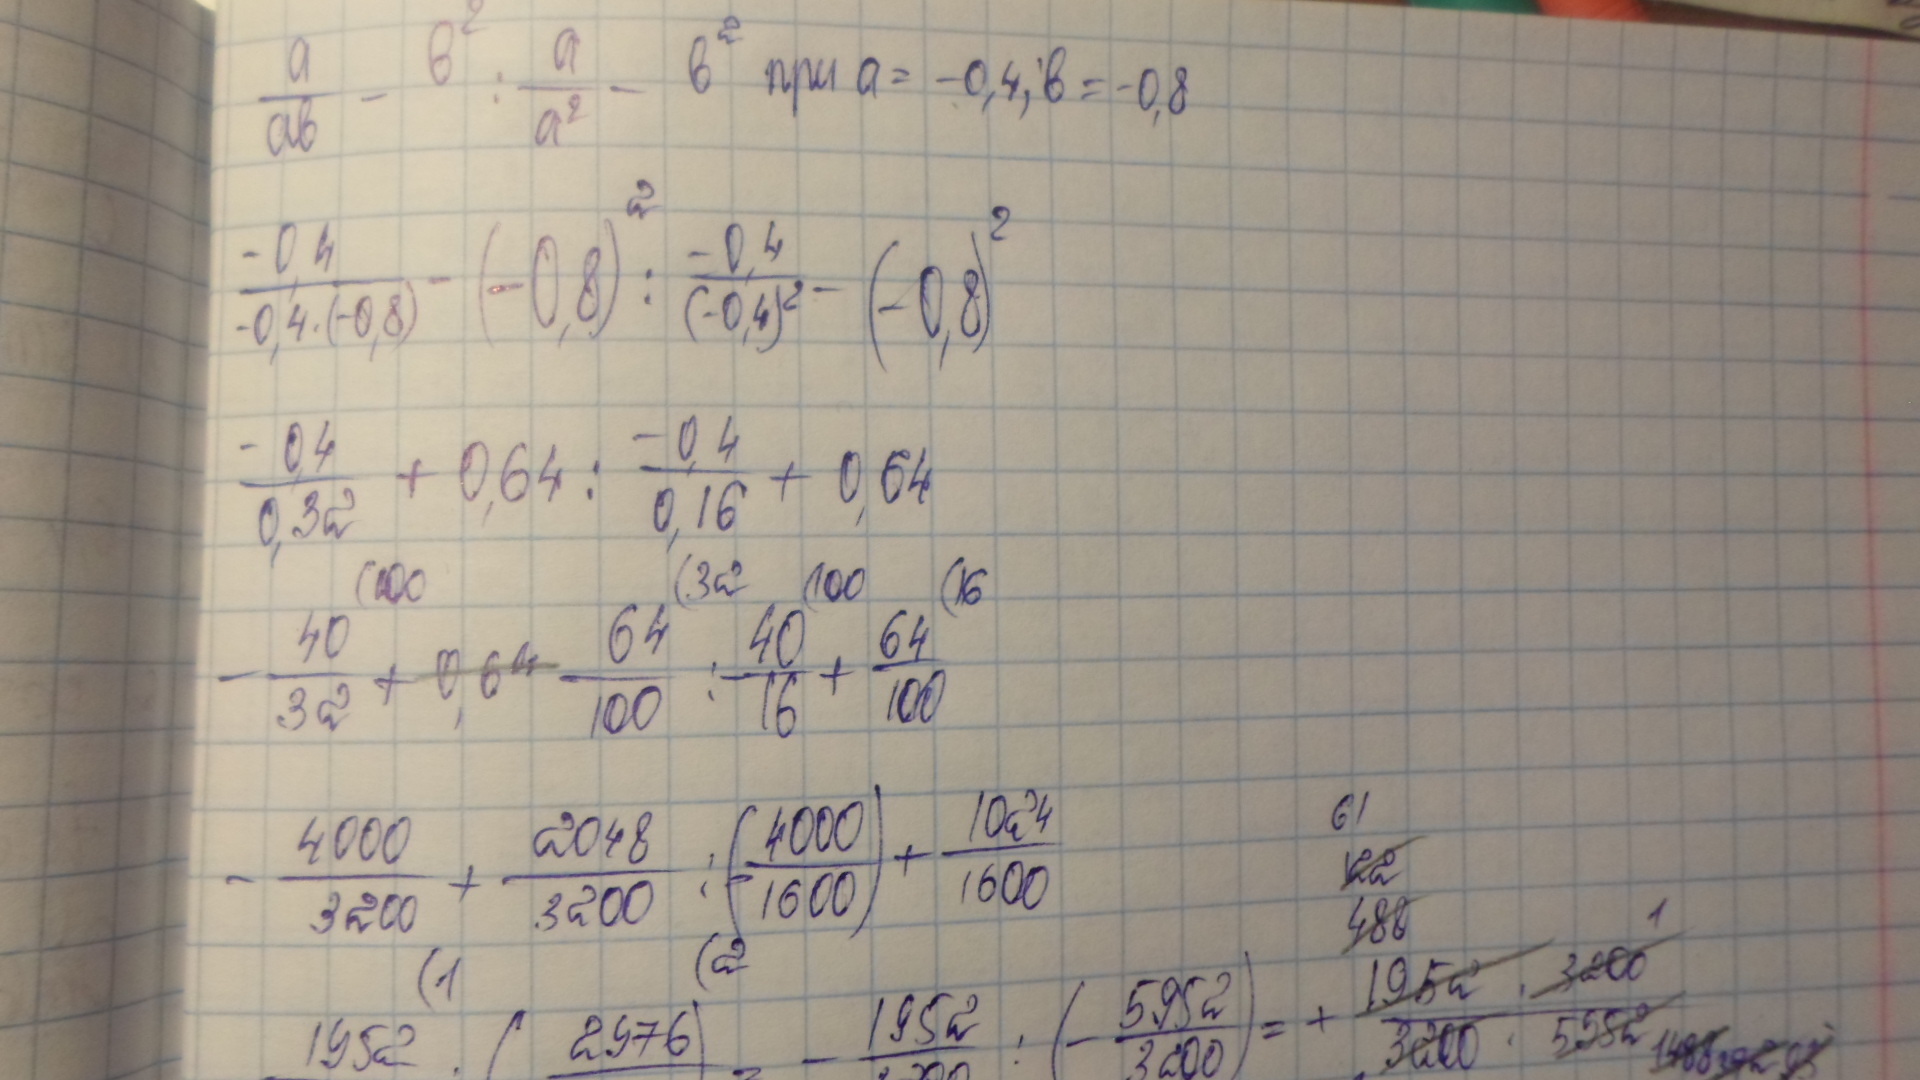 a/ab - b² : a/a² - b² при a = -0,4; b = -0,8
-0,4/-0,4·(-0,8) - (-0,8)² : -0,4/(-0,4)² - (-0,8)²
-0,4/0,32 + 0,64 : -0,4/0,16 + 0,64
(100 (32 (100 (16
- 40/32 + 0,64 64/100 : - 40/16 + 64/100
- 4000/3200 + 2048/3200 : (- 4000/1600) + 1024/1600
61
122
488
(1 (2 1
1952 : ( 2976 ) = - 1952/3200 : (- 5952/3200) = + 1952 · 3200/3200 · 5952